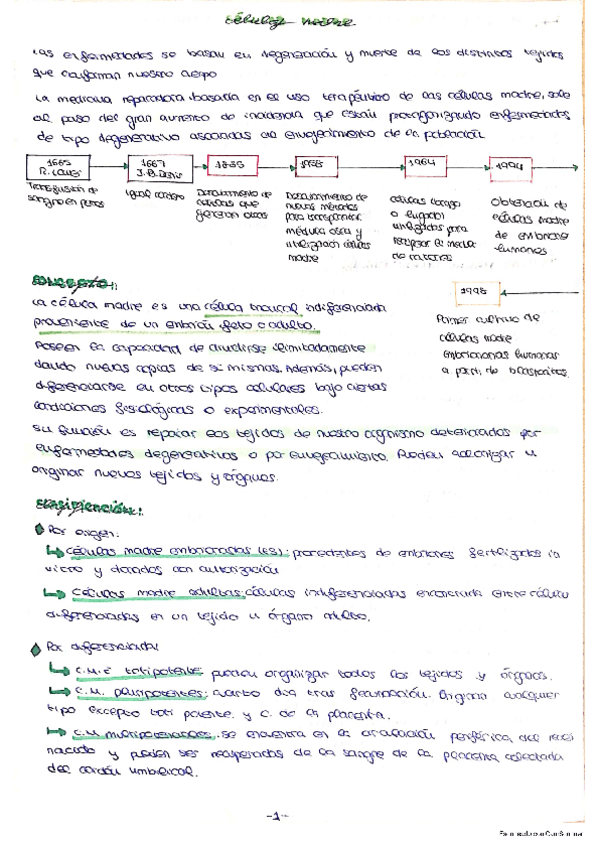 Células madre
Las enfermedades se basan en degeneración y muerte de los distintos tejidos
que conforman nuestro cuerpo
La medicina reparadora, basada en el uso terapéutico de las células madre, sale
al paso del gran aumento de incidencia que están protagonizando enfermedades
de tipo degenerativo asociadas al envejecimiento de la población.
1665
R. Lower
1667
J. B. Denis
1835
1958
1964
1994
Transfusión de
sangre en perros
Igual
Descubrimiento de
células que
generan otras
Descubrimiento de
nuevos métodos
para transplantar
médula ósea y
utilización células
madre
células
o
utilizadas para
recuperar la médula
de ratones
Obtención de
células madre
de embriones
humanos
Concepto:
1998
La célula madre es una célula troncal indiferenciada
proveniente de un embrión, feto o adulto.
Poseen la capacidad de dividirse ilimitadamente
dando nuevas copias de si mismas. Además, pueden
diferenciarse en otros tipos celulares bajo ciertas
condiciones fisiológicas o experimentales.
Primer cultivo de
células madre
embrionarias humanas
a partir de blastocitos.
Su función es reparar los tejidos de nuestro organismo deteriorados por
enfermedades degenerativas o por envejecimiento. Pueden colonizar u
originar nuevos tejidos y órganos.
Clasificación:
Por origen:
Células madre embrionarias (ES): procedentes de embriones fertilizados in
vitro y donados con autorización
Células madre adultas: células indiferenciadas encontrada entre células
diferenciadas en un tejido u órgano adulto.
Por diferenciación:
C.M.E totipotente pueden organizar todos los tejidos y órganos.
C.M. pluripotentes: cuarto día tras fecundación. Origina cualquier
tipo excepto toti potente y c. de la placenta.
C.M multipotenciales: se encuentra en la circulación periférica del recién
nacido y pueden ser recuperadas de la sangre de la placenta colectada
del cordón umbilical.
-1-